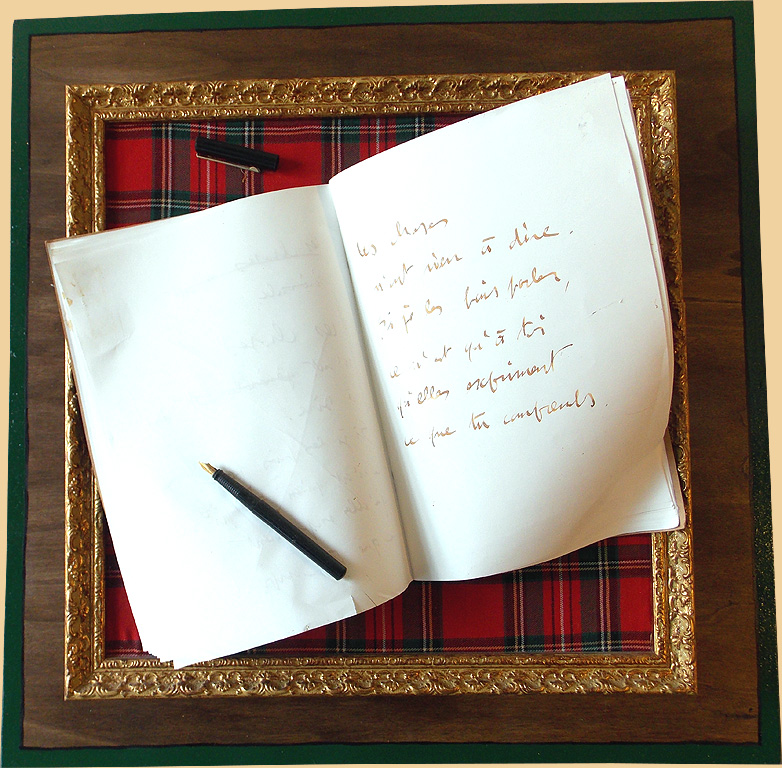 les choses
n'ont rien à dire.
si je les fais parler,
ce n'est qu'à toi
qu'elles expriment
ce que tu comprends.